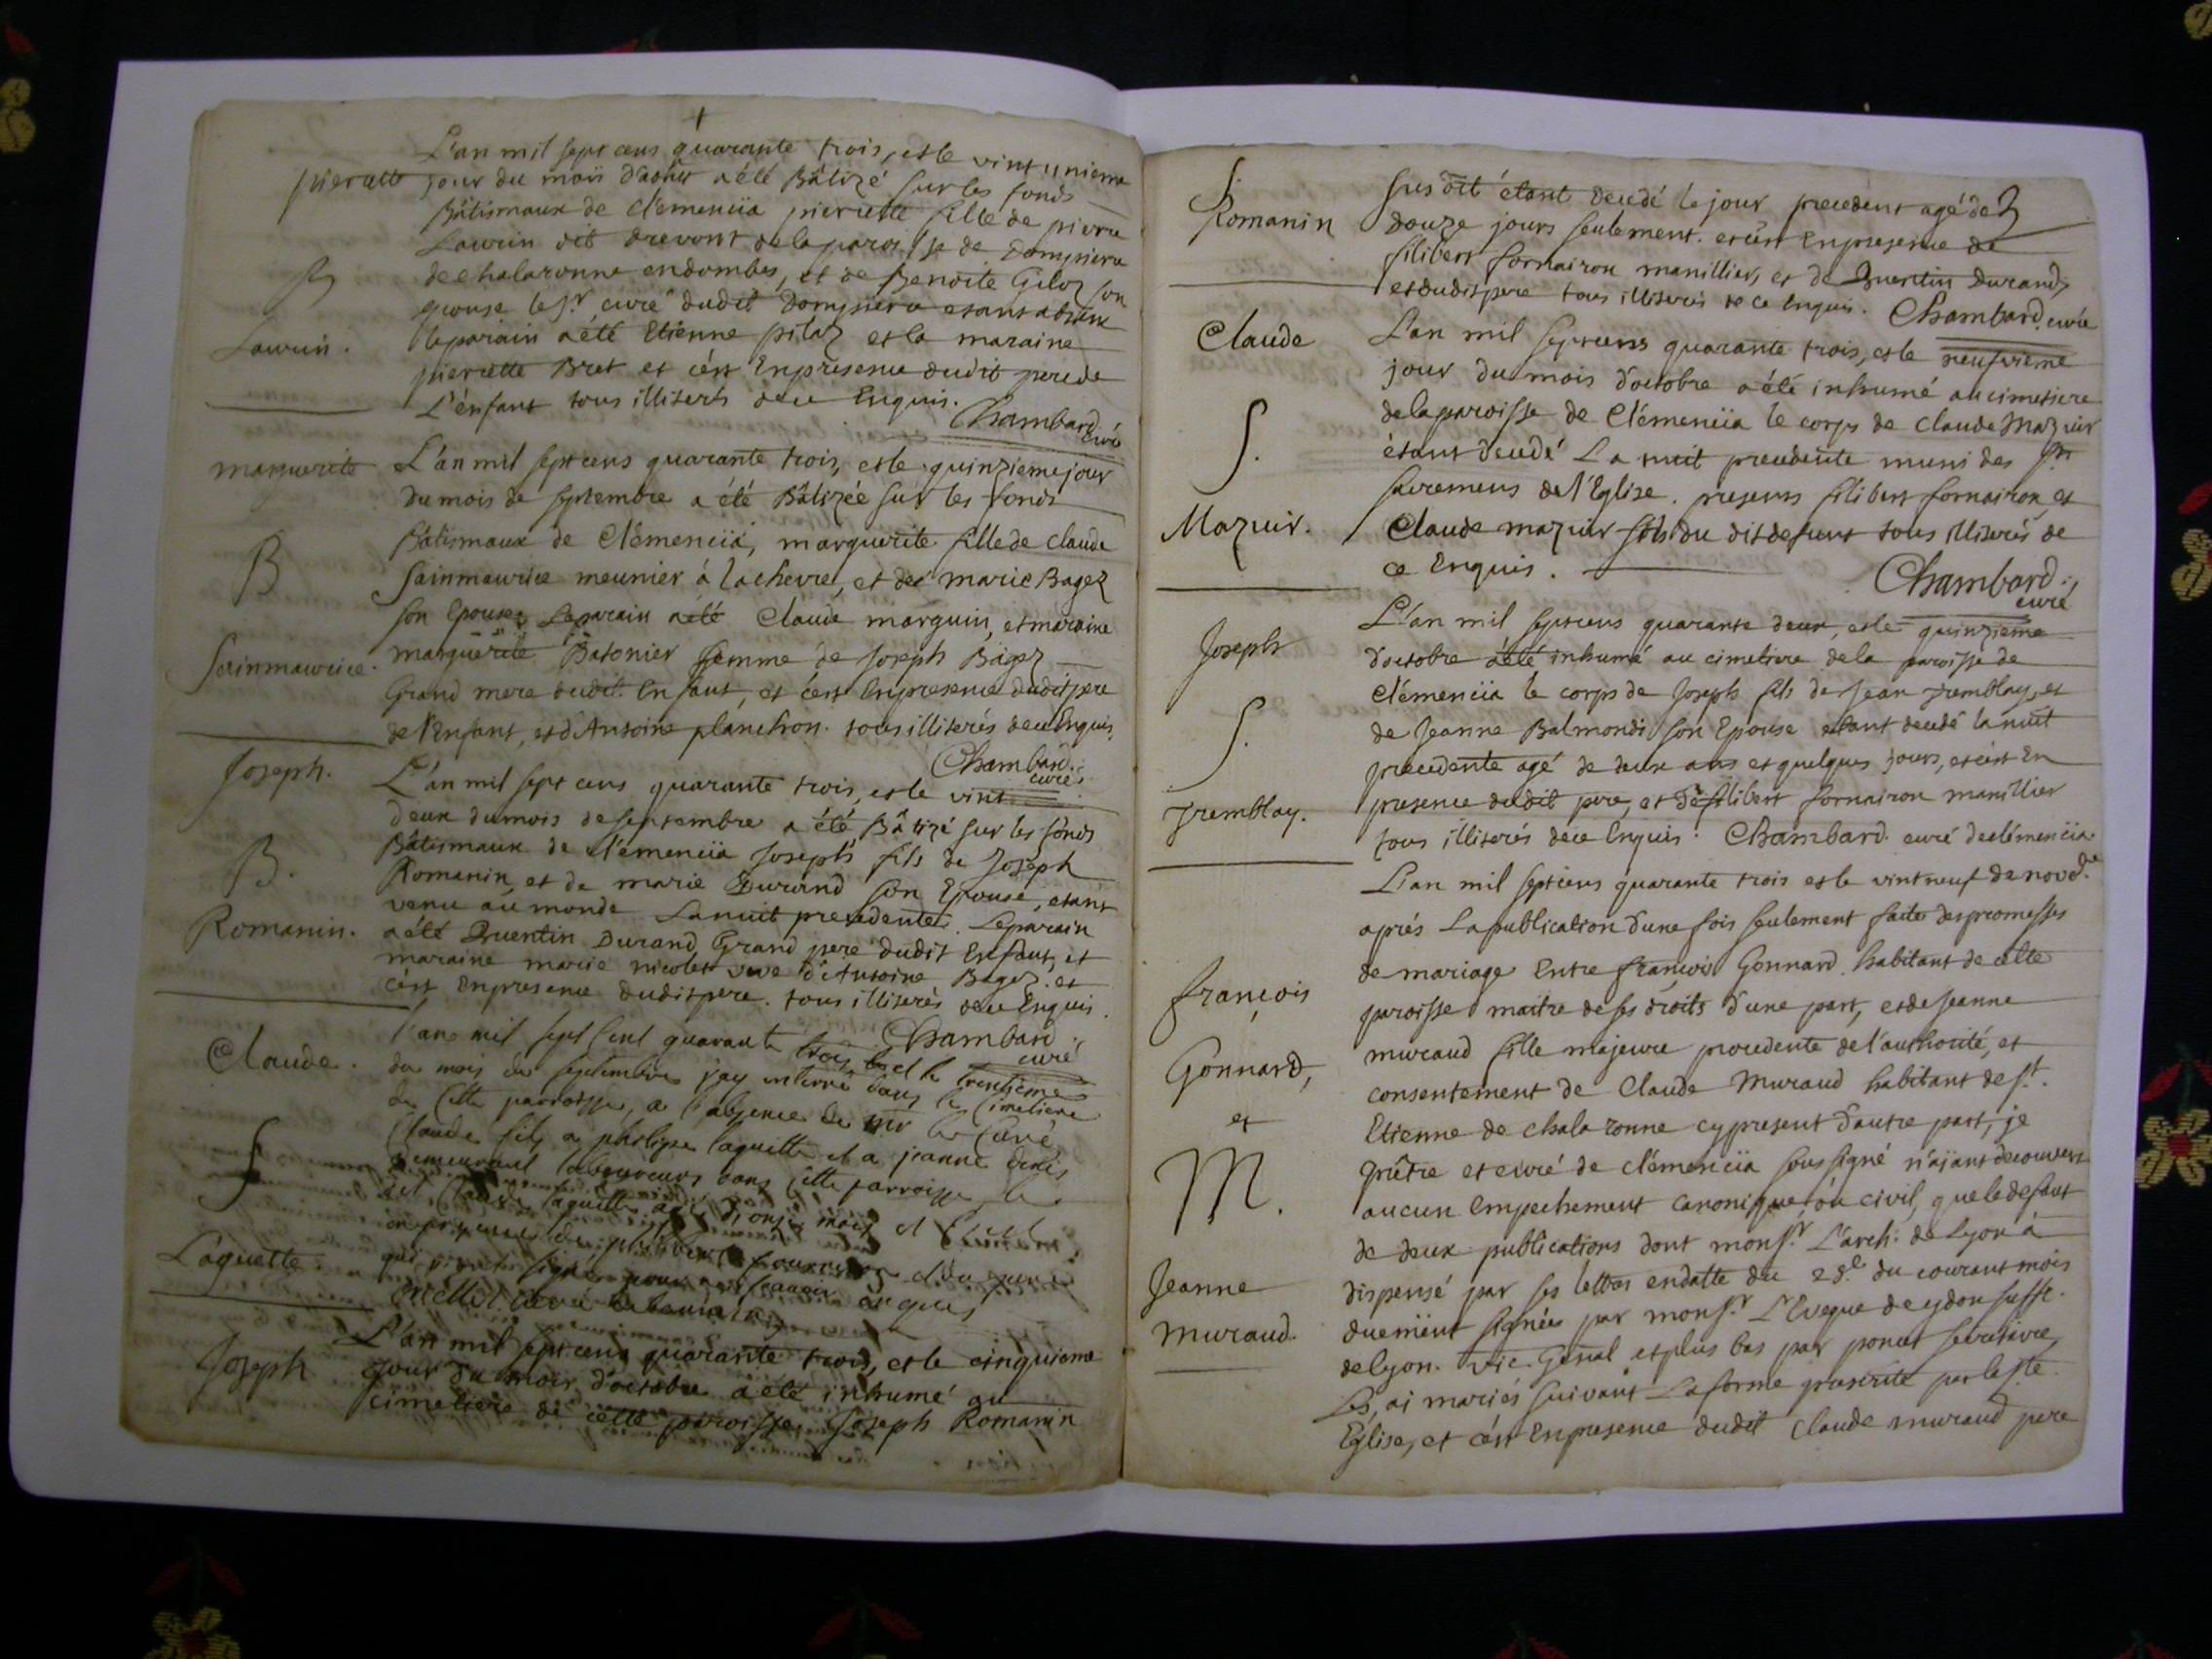 L'an mil sept cens quarante trois, et le vint unieme
pierrette jour du mois d'aôust a été Bâtizé sur les fonds
Bâtismaux de Clémenciia pierrette fille de pierre
Laurin dit drevont de la paroisse de Dompierre
de chalaronne en dombes, et de Benoite Giloz son
B
epouse le Sr. curé dudit Dompierre etant absent
Laurin. le parain a été Etienne pilaz et la maraine
pierrette Bret et c'ést en presence dudit pere de
L'énfant tous illiterés de ce Enquis.
Chambard curé
marguerite L'an mil sept cens quarante trois, et le quinzieme jour
du mois de septembre a été Bâtizée sur les fonds
Bâtismaux de Clémenciia, marguerite fille de claude
B
Sainmaurice meunier à la chevre, et de marie Bagez
son Epouse, Le parain a été Claude marguin, et maraine
Sainmaurice. marguerite Batonier femme de Joseph Bagez
Grand mere dudit Enfant, et c'est En presence dudit pere
de l'Enfant, et d'Antoine planchon. tous illiterés de ce Enquis.
Chambard. curé
Joseph. L'an mil sept cens quarante trois, et le vint
deux du mois de septembre a été Bâtizé sur les fonds
Bâtismaux de Clémenciia Joseph fils de Joseph
B.
Romanin, et de marie Durand son Epouse, etant
venu au monde La nuit precedente. Le parain
Romanin. a été Quentin Durand Grand pere dudit Enfant, et
maraine marie nicolet veve d'Antoine Bagez. et
c'ést En presence dudit pere. tous illiterés de ce Enquis.
Chambard. curé
Claude. l'an mil sept cent quarante trois et le trentieme
du mois de septembre j'ay enterré dans le cimetiere
de cette parroisse, a l'absence de mr le Curé
Claude fils a philippe laquette et a jeanne
S
demeurant laboureurs dans cette parroisse le
dit Claude laquette agé d'onze mois et c'est
Laquette. en presence de philibert fournairon et du pere
qui n'ont signé pour ne sçavoir enquis
Joseph L'an mil sept cens quarante trois, et le cinquieme
jour du mois d'octobre a été inhumé au
cimetiere de cette paroisse Joseph Romanin
S.
Romanin
sus dit étant decedé le jour precedent agé de
douze jours seulement. et c'ést En presence de
filibert fornairon manillier, et de Quentin Durand,
et dudit pere tous illiterés de ce Enquis. Chambard. curé
Claude L'an mil sept cens quarante trois, et le neufvieme
jour du mois d'octobre a été inhumé au cimetiere
de la paroisse de Clémenciia le corps de Claude Mazuir
S.
étant decedé La nuit precedente muni des sts
sacremens de l'Eglise. presens filibert fornairon, et
Mazuir. Claude mazuir fils du dit defunt tous illiterés de
ce Enquis.
Chambard. curé
Joseph L'an mil sept cens quarante deux, et le quinzieme
d'octobre a été inhumé au cimetiere de la paroisse de
Clémenciia le corps de Joseph fils de Jean Tremblay, et
S.
de Jeanne Balmondi son Epouse etant decedé la nuit
precedente agé de deux ans et quelques jours, et c'ést En
Tremblay. presence dudit pere, et de filibert fornairon manillier
tous illiterés de ce Enquis. Chambard. curé de clémenciia.
L'an mil sept cens quarante trois et le vint neuf de nove.
aprés La publication d'une fois seulement faite des promesses
de mariage Entre françois Gonnard habitant de cette
françois paroisse maitre de ses droits d'une part, et de Jeanne
Gonnard, muraud fille majeure procedente de l'authorité, et
consentement de Claude Muraud habitant de st.
et Etienne de chalaronne cy present d'autre part, je
M. prêtre et curé de clémenciia soussigné n'aijant decouvert
aucun Empechement canonique, ou civil, que le defaut
de deux publications dont monsr. L'arch. de Lyon à
Jeanne dispensé par ses lettres en datte du 28e. du courant mois
muraud. duement signées par monsr. L'Eveque de ydon suffr.
de lyon. vic. Genal et plus bas par poncet secretaire,
Les, ai mariés suivant La forme prescrite par la ste.
Eglise, et c'ést En presence dudit Claude muraud pere